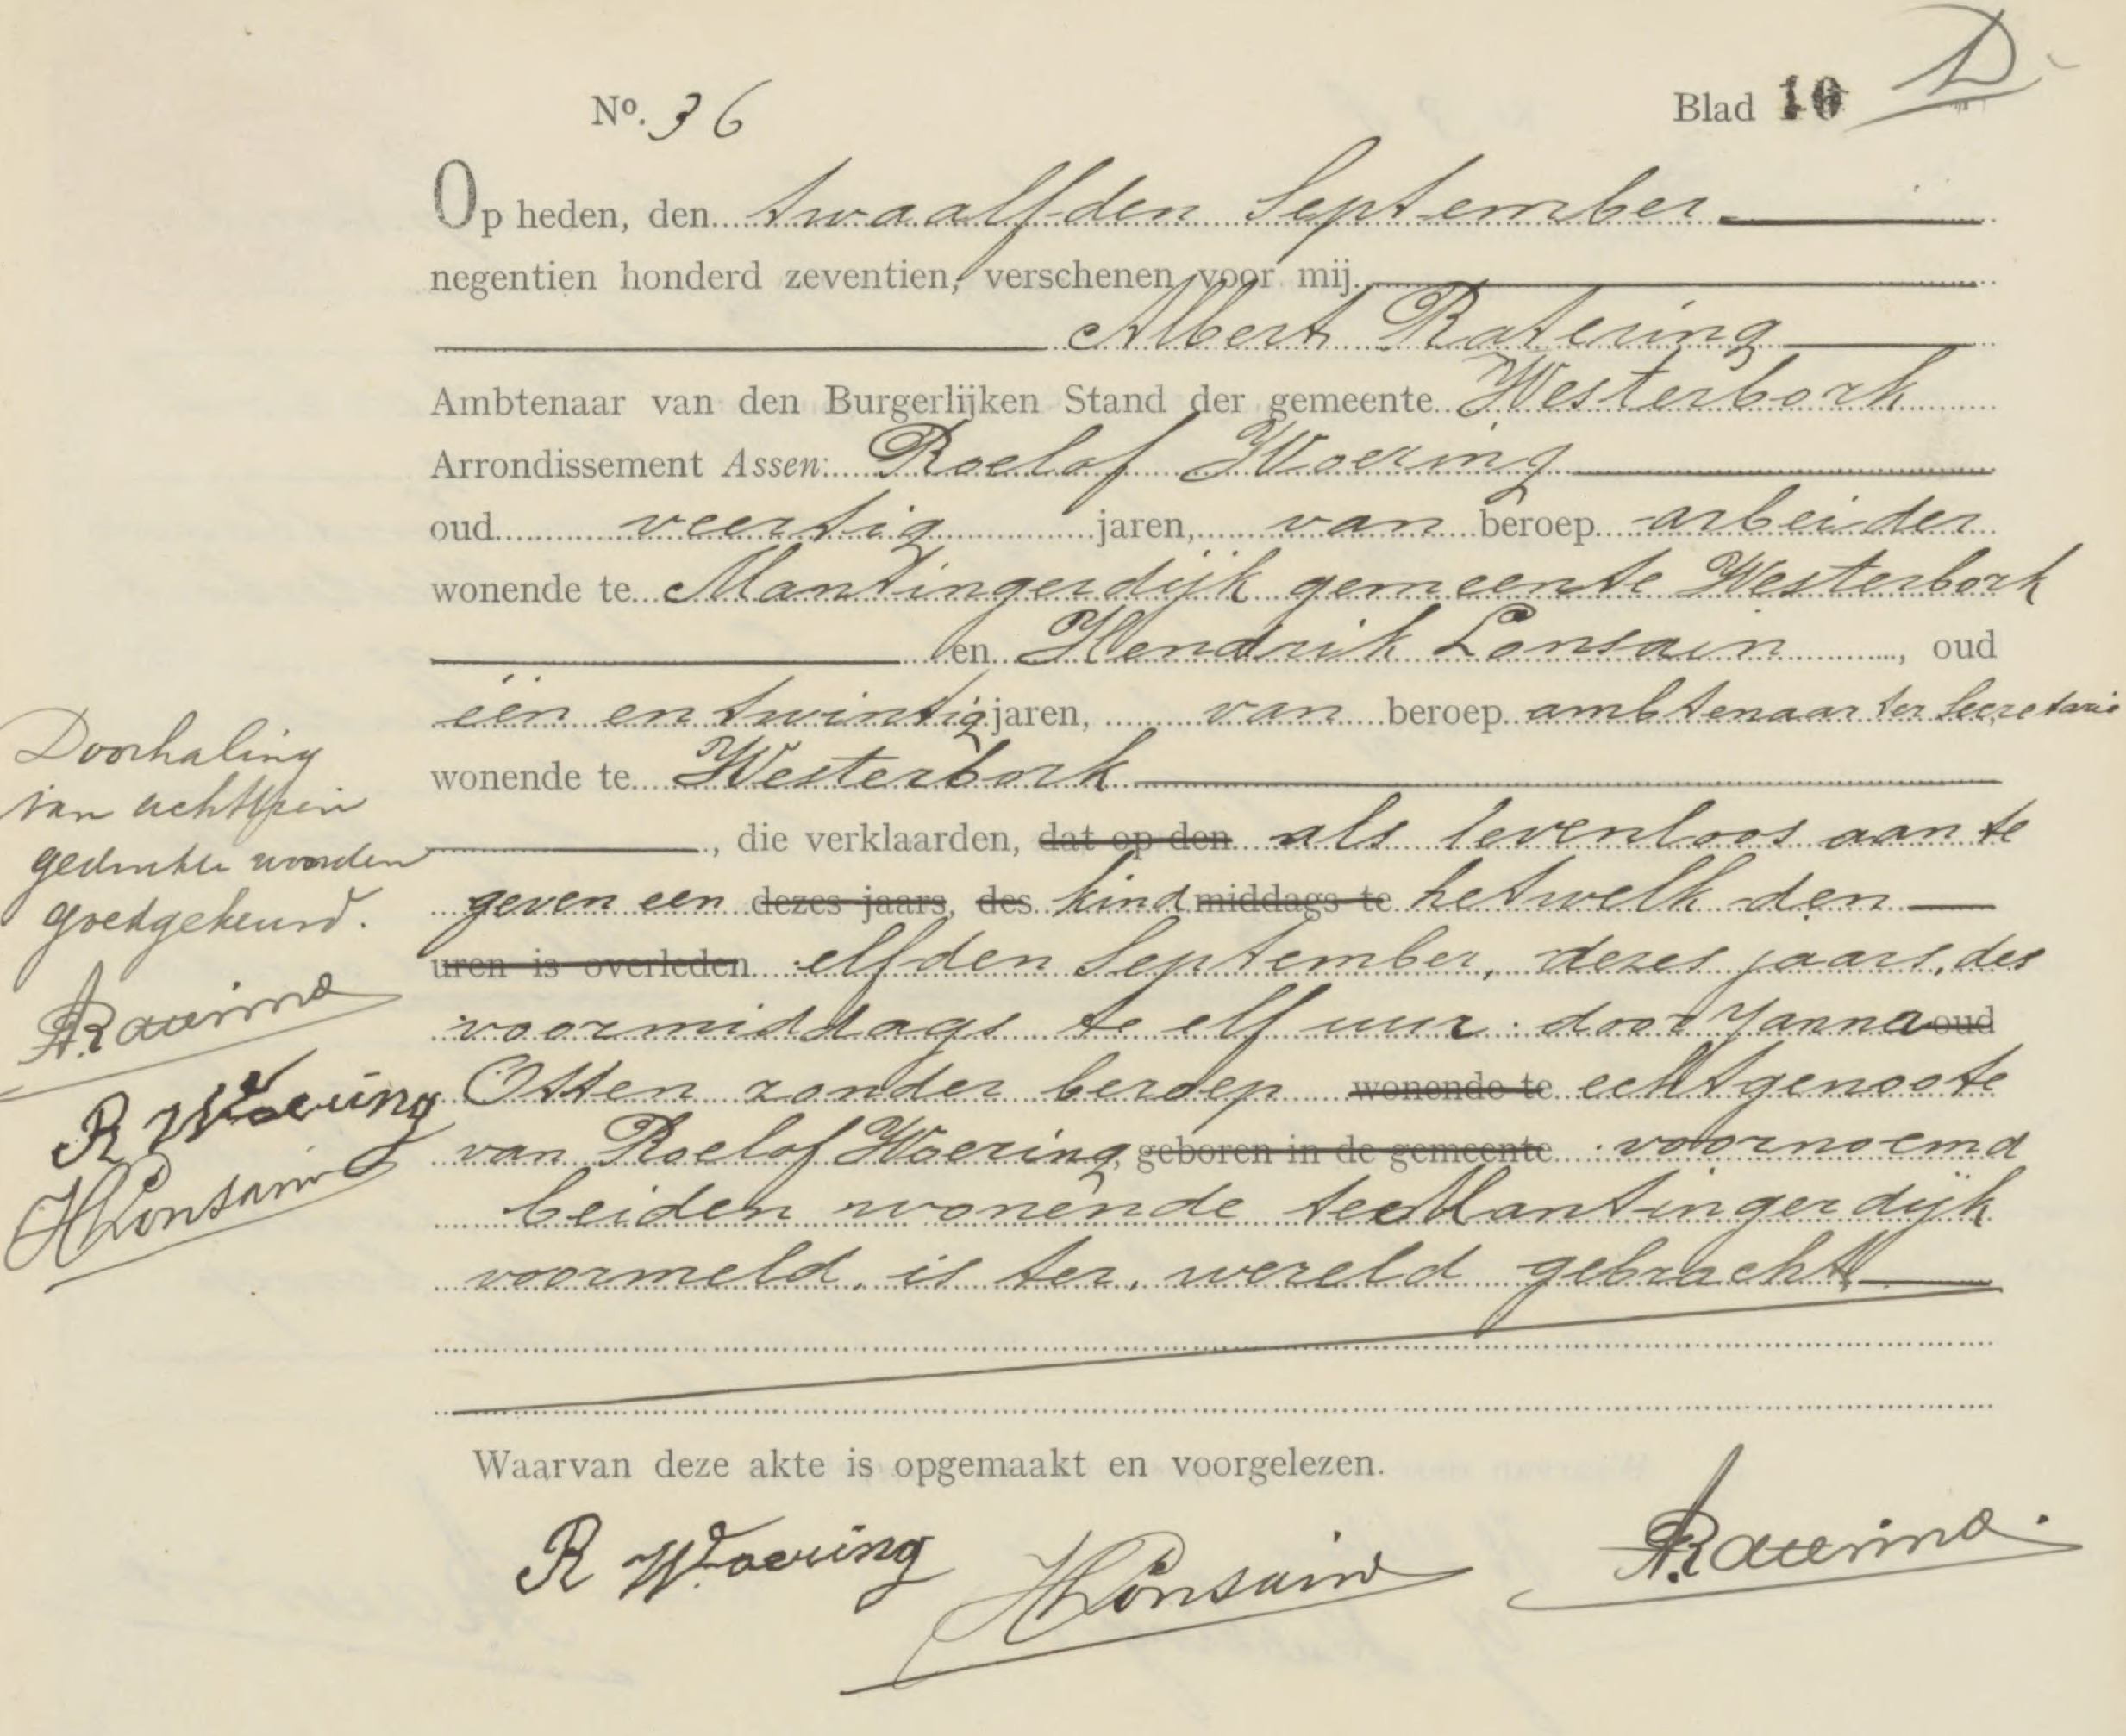 Nº. 36
Blad 10 D
Op heden, den twaalfden September
negentien honderd zeventien, verschenen voor mij
Albert Ratering
Ambtenaar van den Burgerlijken Stand der gemeente Westerbork
Arrondissement Assen: Roelof Woering
oud veertig jaren, van beroep arbeider
wonende te Mantingerdijk gemeente Westerbork
en Hendrik Lonsain, oud
één en twintig jaren, van beroep ambtenaar ter Secretarie
wonende te Westerbork
, die verklaarden, dat op den als levenloos aan te
geven een dezes jaars, des kind middags te hetwelk den
uren is overleden elfden September, dezes jaars, des
voormiddags te elf uur door Janna oud
Otten zonder beroep wonende te echtgenoote
van Roelof Woering, geboren in de gemeente voornoemd
beiden wonende te Mantingerdijk
voormeld, is ter wereld gebracht
Waarvan deze akte is opgemaakt en voorgelezen.
R Woering HLonsain ARatering
Doorhaling
van achttien
gedrukte woorden
goedgekeurd.
ARatering
R Woering
HLonsain